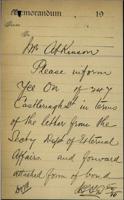 Memorandum 19
Mr Atkinson
Please inform
Yee On of 247
Castlereagh St in terms
of the letter from the
Secty Dept of External
Affairs and forward
attached form of bond